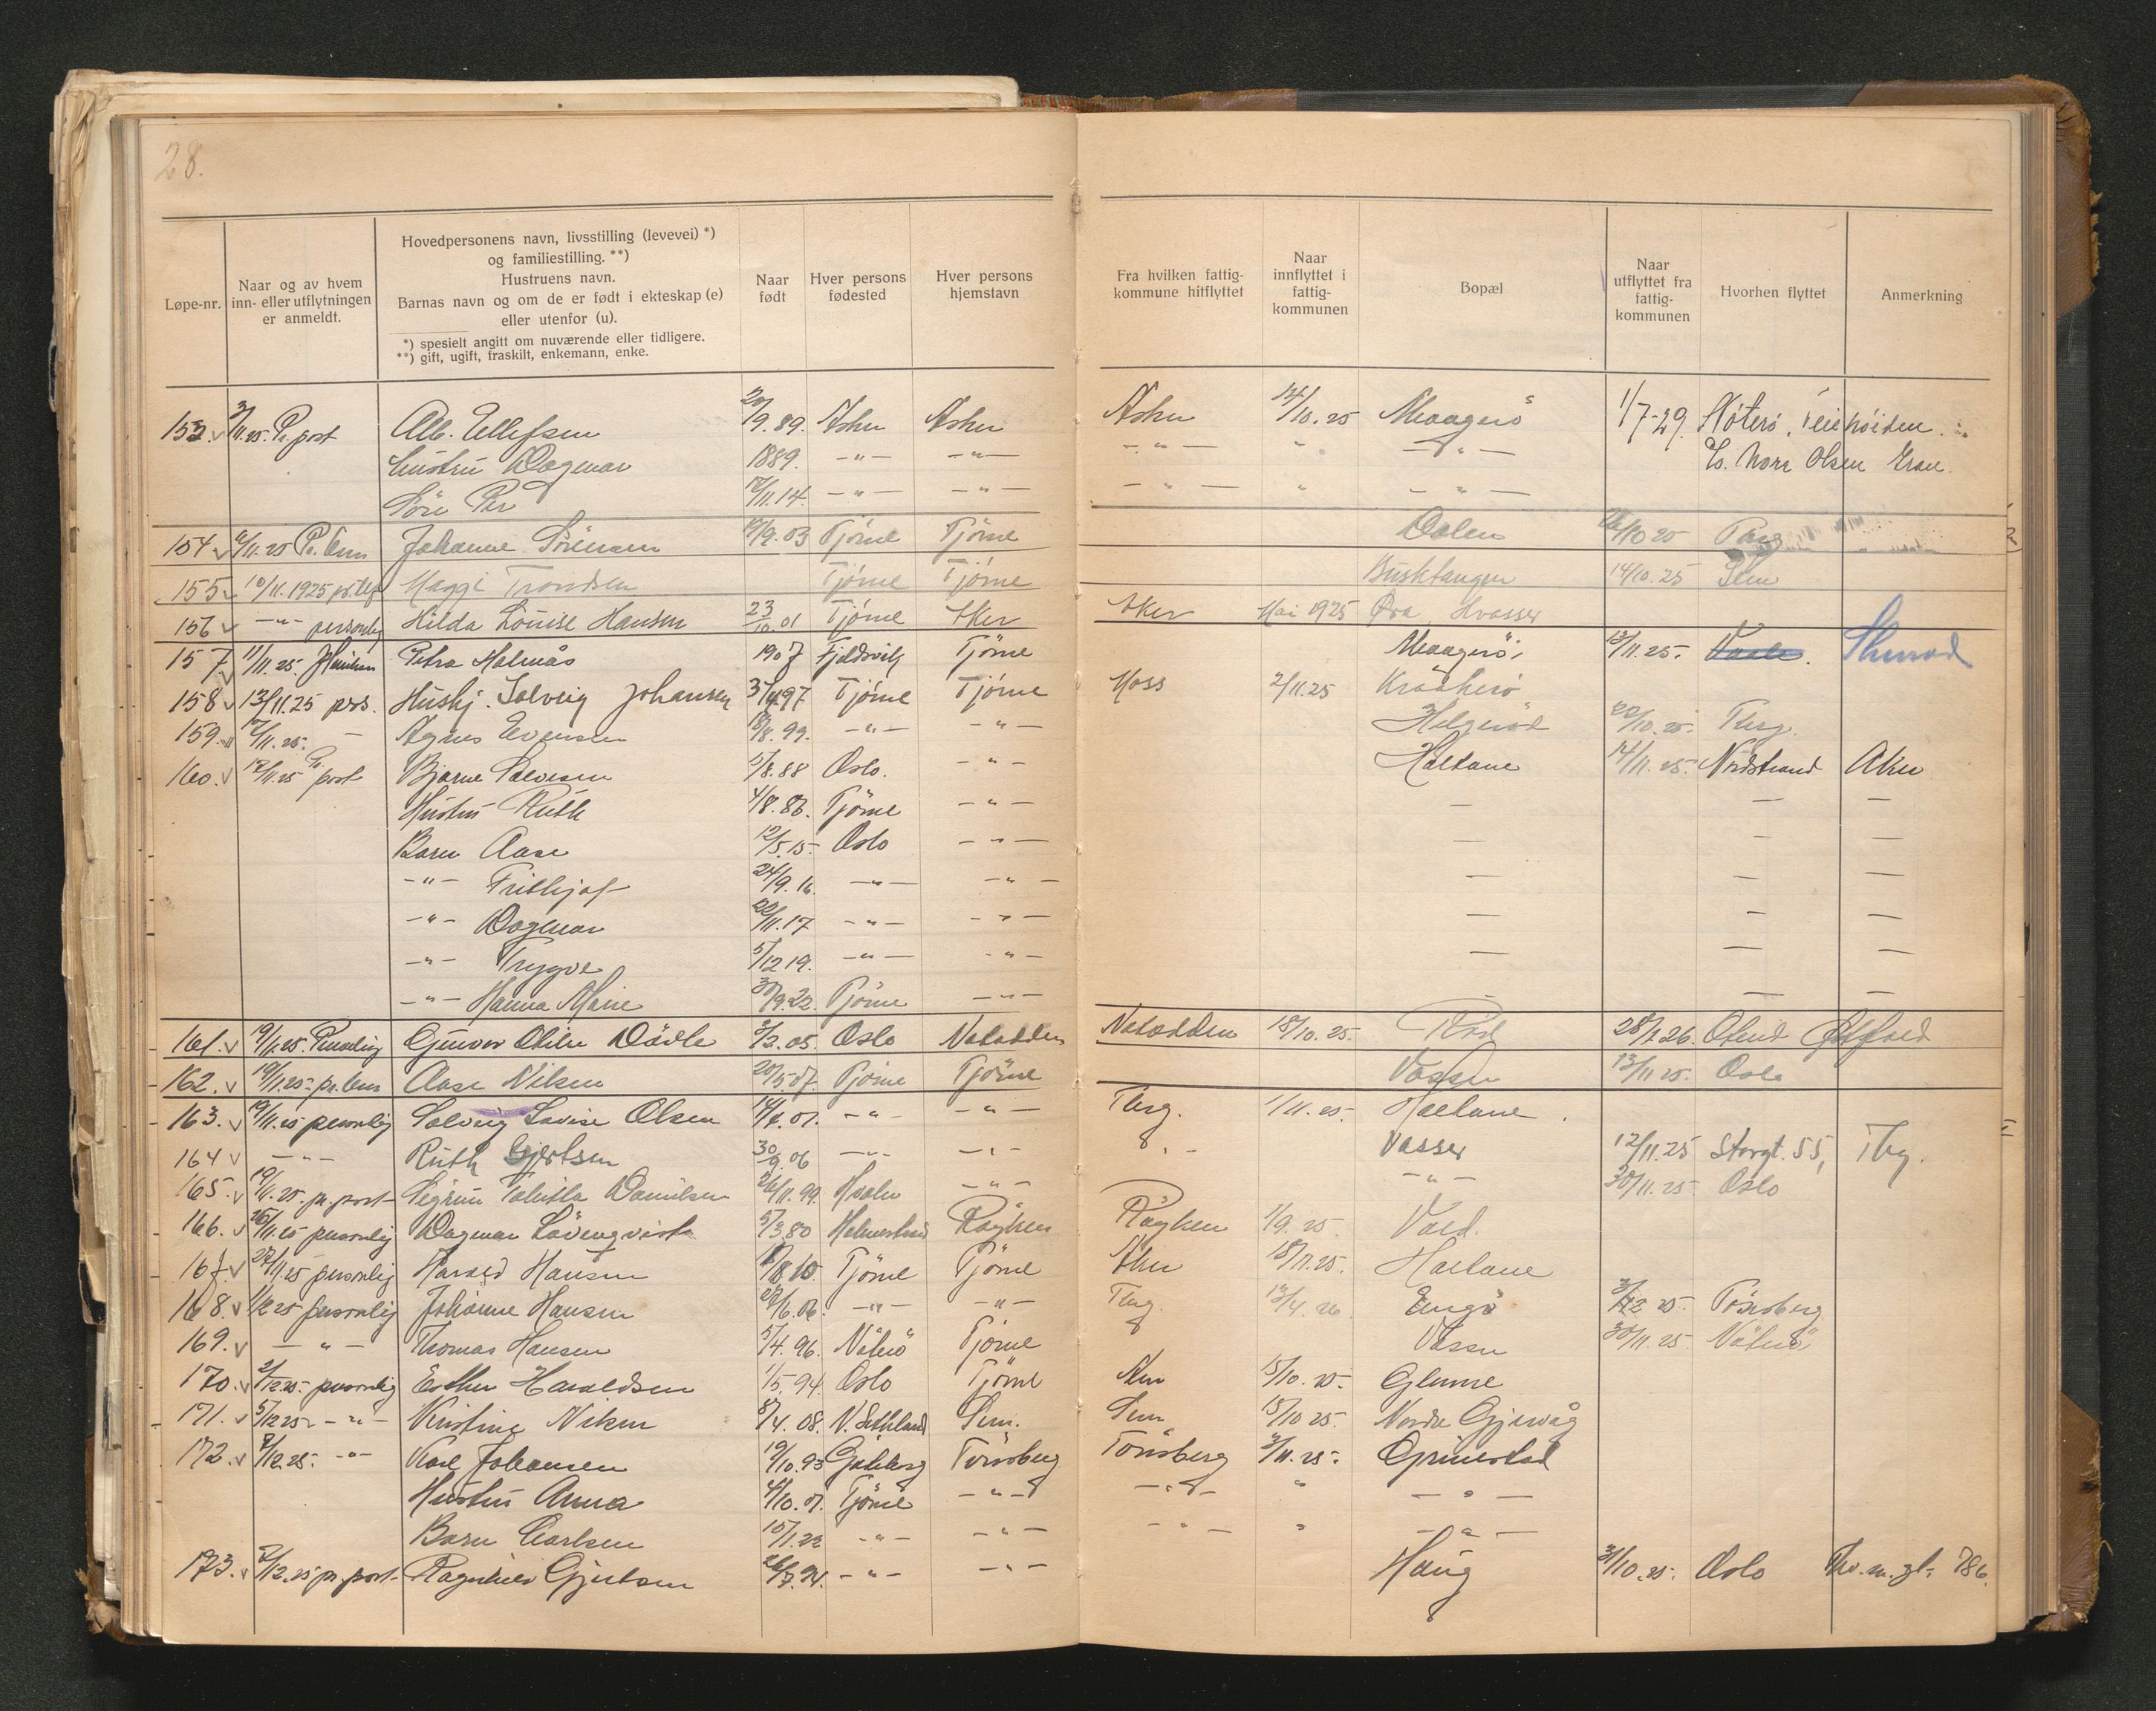 28.
Løpe-nr.
Naar og av hvem
inn- eller utflytningen
er anmeldt.
Hovedpersonens navn, livsstilling (levevei) *)
og familiestilling. **)
Hustruens navn.
Barnas navn og om de er født i ekteskap (e)
eller utenfor (u).
*) spesielt angitt om nuværende eller tidligere.
**) gift, ugift, fraskilt, enkemann, enke.
Naar
født
Hver persons
fødested
Hver persons
hjemstavn
Fra hvilken fattig-
kommune hitflyttet
Naar
innflyttet i
fattig-
kommunen
Bopæl
Naar
utflyttet fra
fattig-
kommunen
Hvorhen flyttet
Anmerkning
153. 3/11.25. Pr. post Alb. Ellefsen 20/9.89. Asker Asker Asker 14/10.25 Maagerö 1/7-29. Nøterö,
hustru Dagmar 1889. -"- -"- -"- " -"- Olsen
Sön Per 12/11.14. -"- -"- -"- " -"-
154 6/11.25 Johanne Sörensen 19/9.03 Tjöme Tjöme Dalen 26/10 25 Tbrg
155 10/11.1925 pr. tlf Maggi Trondsen Tjöme Tjöme Busktangen 14/10.25 Sem
156 -"- personlig Hilda Louise Hansen 23/10.01 Tjöme Aker Aker Mai 1925 Øra Hvasser
157. 11/11.25. Petra Holmås 1907 Tjöme Maagerö. 13/11.25. Vaale.
158 13/11.25 prs. Hushj. Solveig Johansen 3/4 97 Tjöme Tjöme Moss 2/11.25 Kråkerö
159. 17/11.25. - Agnes Evensen 18/8.99. -"- -"- Helgeröd 22/10.25. Tbrg.
160. 17/11.25 Pr. post Bjarne Salvesen 5/8.88 Oslo. -"- Haltane 14/11.25. Nordstrand Aker
Hustru Ruth 4/8.86. Tjöme -"- — — —
Barn Aase 12/5.15. Oslo -"- — — —
-"- Frithjof 24/9.16. -"- -"- — — —
-"- Dagmar 22/11.17 -"- -"- — — —
-"- Trygve 5/12 19. -"- -"- — — —
-"- Hanna Marie 30/9.22. Tjöme -"- — — —
161. 19/11.25. Personlig Gunvor Otilie 3/2.05. Oslo Notodden Notodden 18/10.25. Röd 28/1.26. Østfold
162. 19/11.25. pr. Aase Nilsen 20/5.07. Tjöme Tjöme Vasser 13/11 25. Oslo
163. 19/11.25 personlig Solveig Lovise Olsen 14/4.01. -"- -"- Tbrg. 1/11.25. Haltane.
164 -"- Ruth Gjertsen 30/9.06 -"- -"- -"- Vasser 12/11.25 Storgt. 55, Tbg.
165. 19/11.25. pr. post Sigrun Danielsen 26/11.99. -"- -"- 30/11.25 Oslo
166. 26/11.25 personlig Dagmar Lövenqvist 5/3.80 Holmestrand Røyken Røyken 1/9.25. Vold.
167. 27/11.25 personlig Harald Hansen Tjöme Tjöme Aker 18/11.25. Haltane
168. 1/12 25 personlig Johanne Hansen 27/6.06. -"- -"- Tbrg. 13/4.26 Engö 3/12 25. Tönsberg
169. -"- Thomas Hansen 5/4.96. Nöterö Tjöme Vasser 30/11.25. Nöterö
170. 2/12.25. personlig Esther Haraldsen 1/5.94. Oslo Tjöme 15/10.25. Glenne
171. 5/12 25. -"- Kristine Nilsen 8/4.08. Sem. Sem 15/10 25. Nordre Gjervåg
172. 7/12.25. -"- Karl Johansen 19/10.93 Tönsberg Tönsberg 3/11.25. Grimestad
Hustru Anna 4/10.01. Tjöme -"- -"- " -"-
Barn Carlsen 15/1.22 -"- -"- -"- " -"-
173. 7/12.25 pr. post Ragnhild Gjertsen 26/7.94. -"- -"- Haug 31/10.25. Oslo 786.